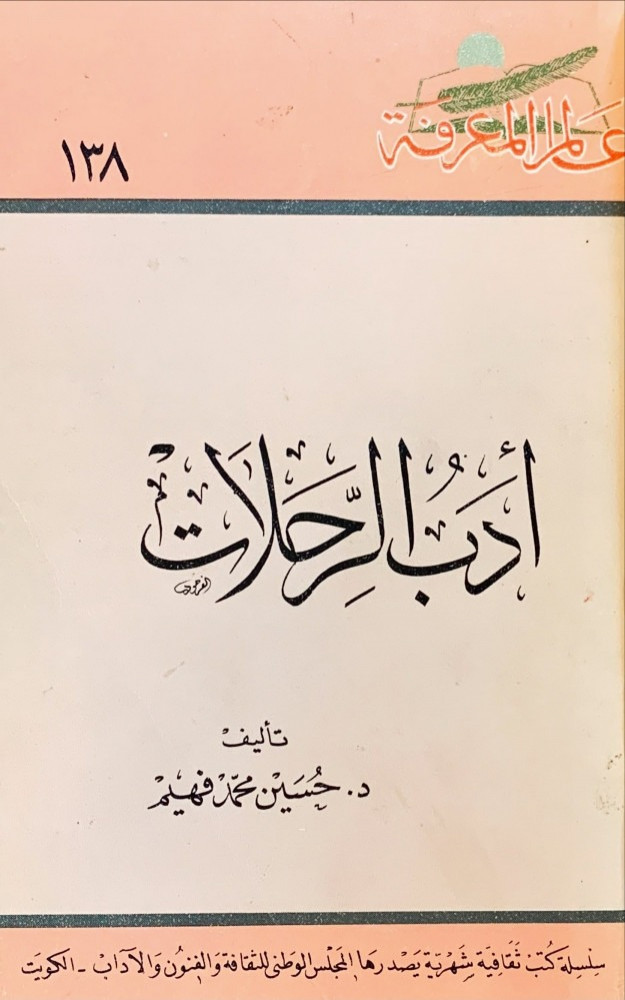 عالم المعرفة
١٣٨
أدب الرحلات
تأليف
د. حسين محمد فهيم
سلسلة كتب ثقافية شهرية يصدرها المجلس الوطني للثقافة والفنون والآداب - الكويت